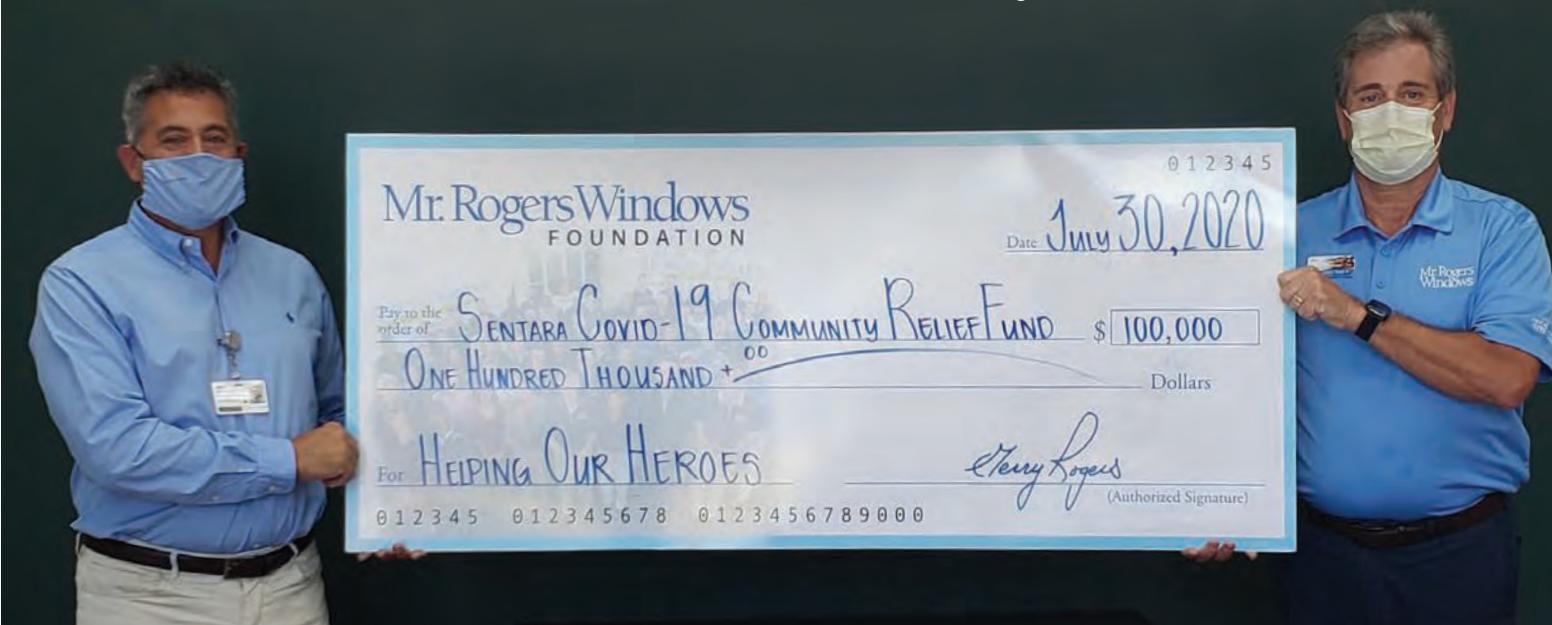 012345
Mr. Rogers Windows
FOUNDATION
Date July 30, 2020
Pay to the
order of SENTARA COVID-19 COMMUNITY RELIEF FUND $ 100,000
ONE HUNDRED THOUSAND + 00 Dollars
For HELPING OUR HEROES
Gerry Rogers
(Authorized Signature)
012345 012345678 0123456789000
Mr. Rogers
Windows